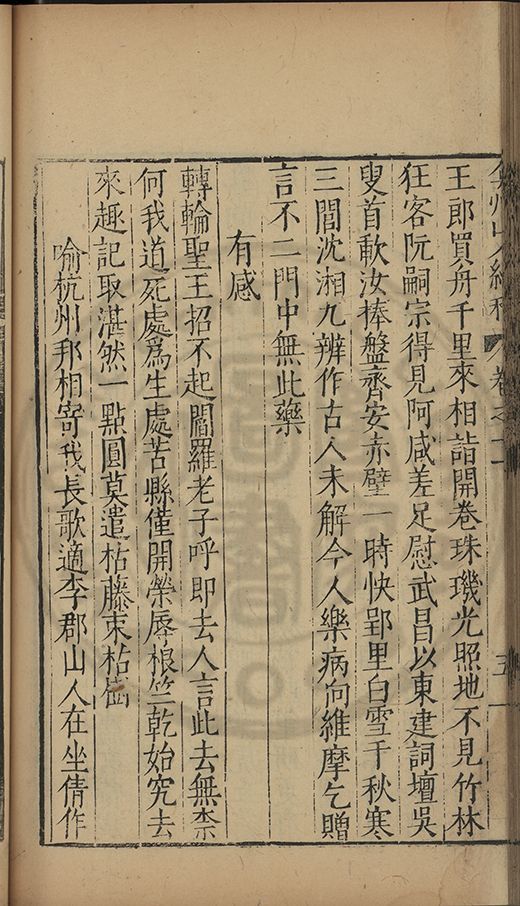 弇州山人續稿 卷之十一 五
王郎買舟千里來相詣開卷珠璣光照地不見竹林
狂客阮嗣宗得見阿咸差足慰武昌以東建詞壇吳
叟首歃汝捧盤齊安赤壁一時快郢里白雪千秋寒
三閭沈湘九辨作古人未解今人樂病向維摩乞贈
言不二門中無此藥
有感
轉輪聖王招不起閻羅老子呼即去人言此去無柰
何我道死處爲生處苦縣僅開榮辱根竺乾始究去
來趣記取湛然一點圓莫遣枯藤束枯
喻杭州邦相寄我長歌適李郡山人在坐倩作